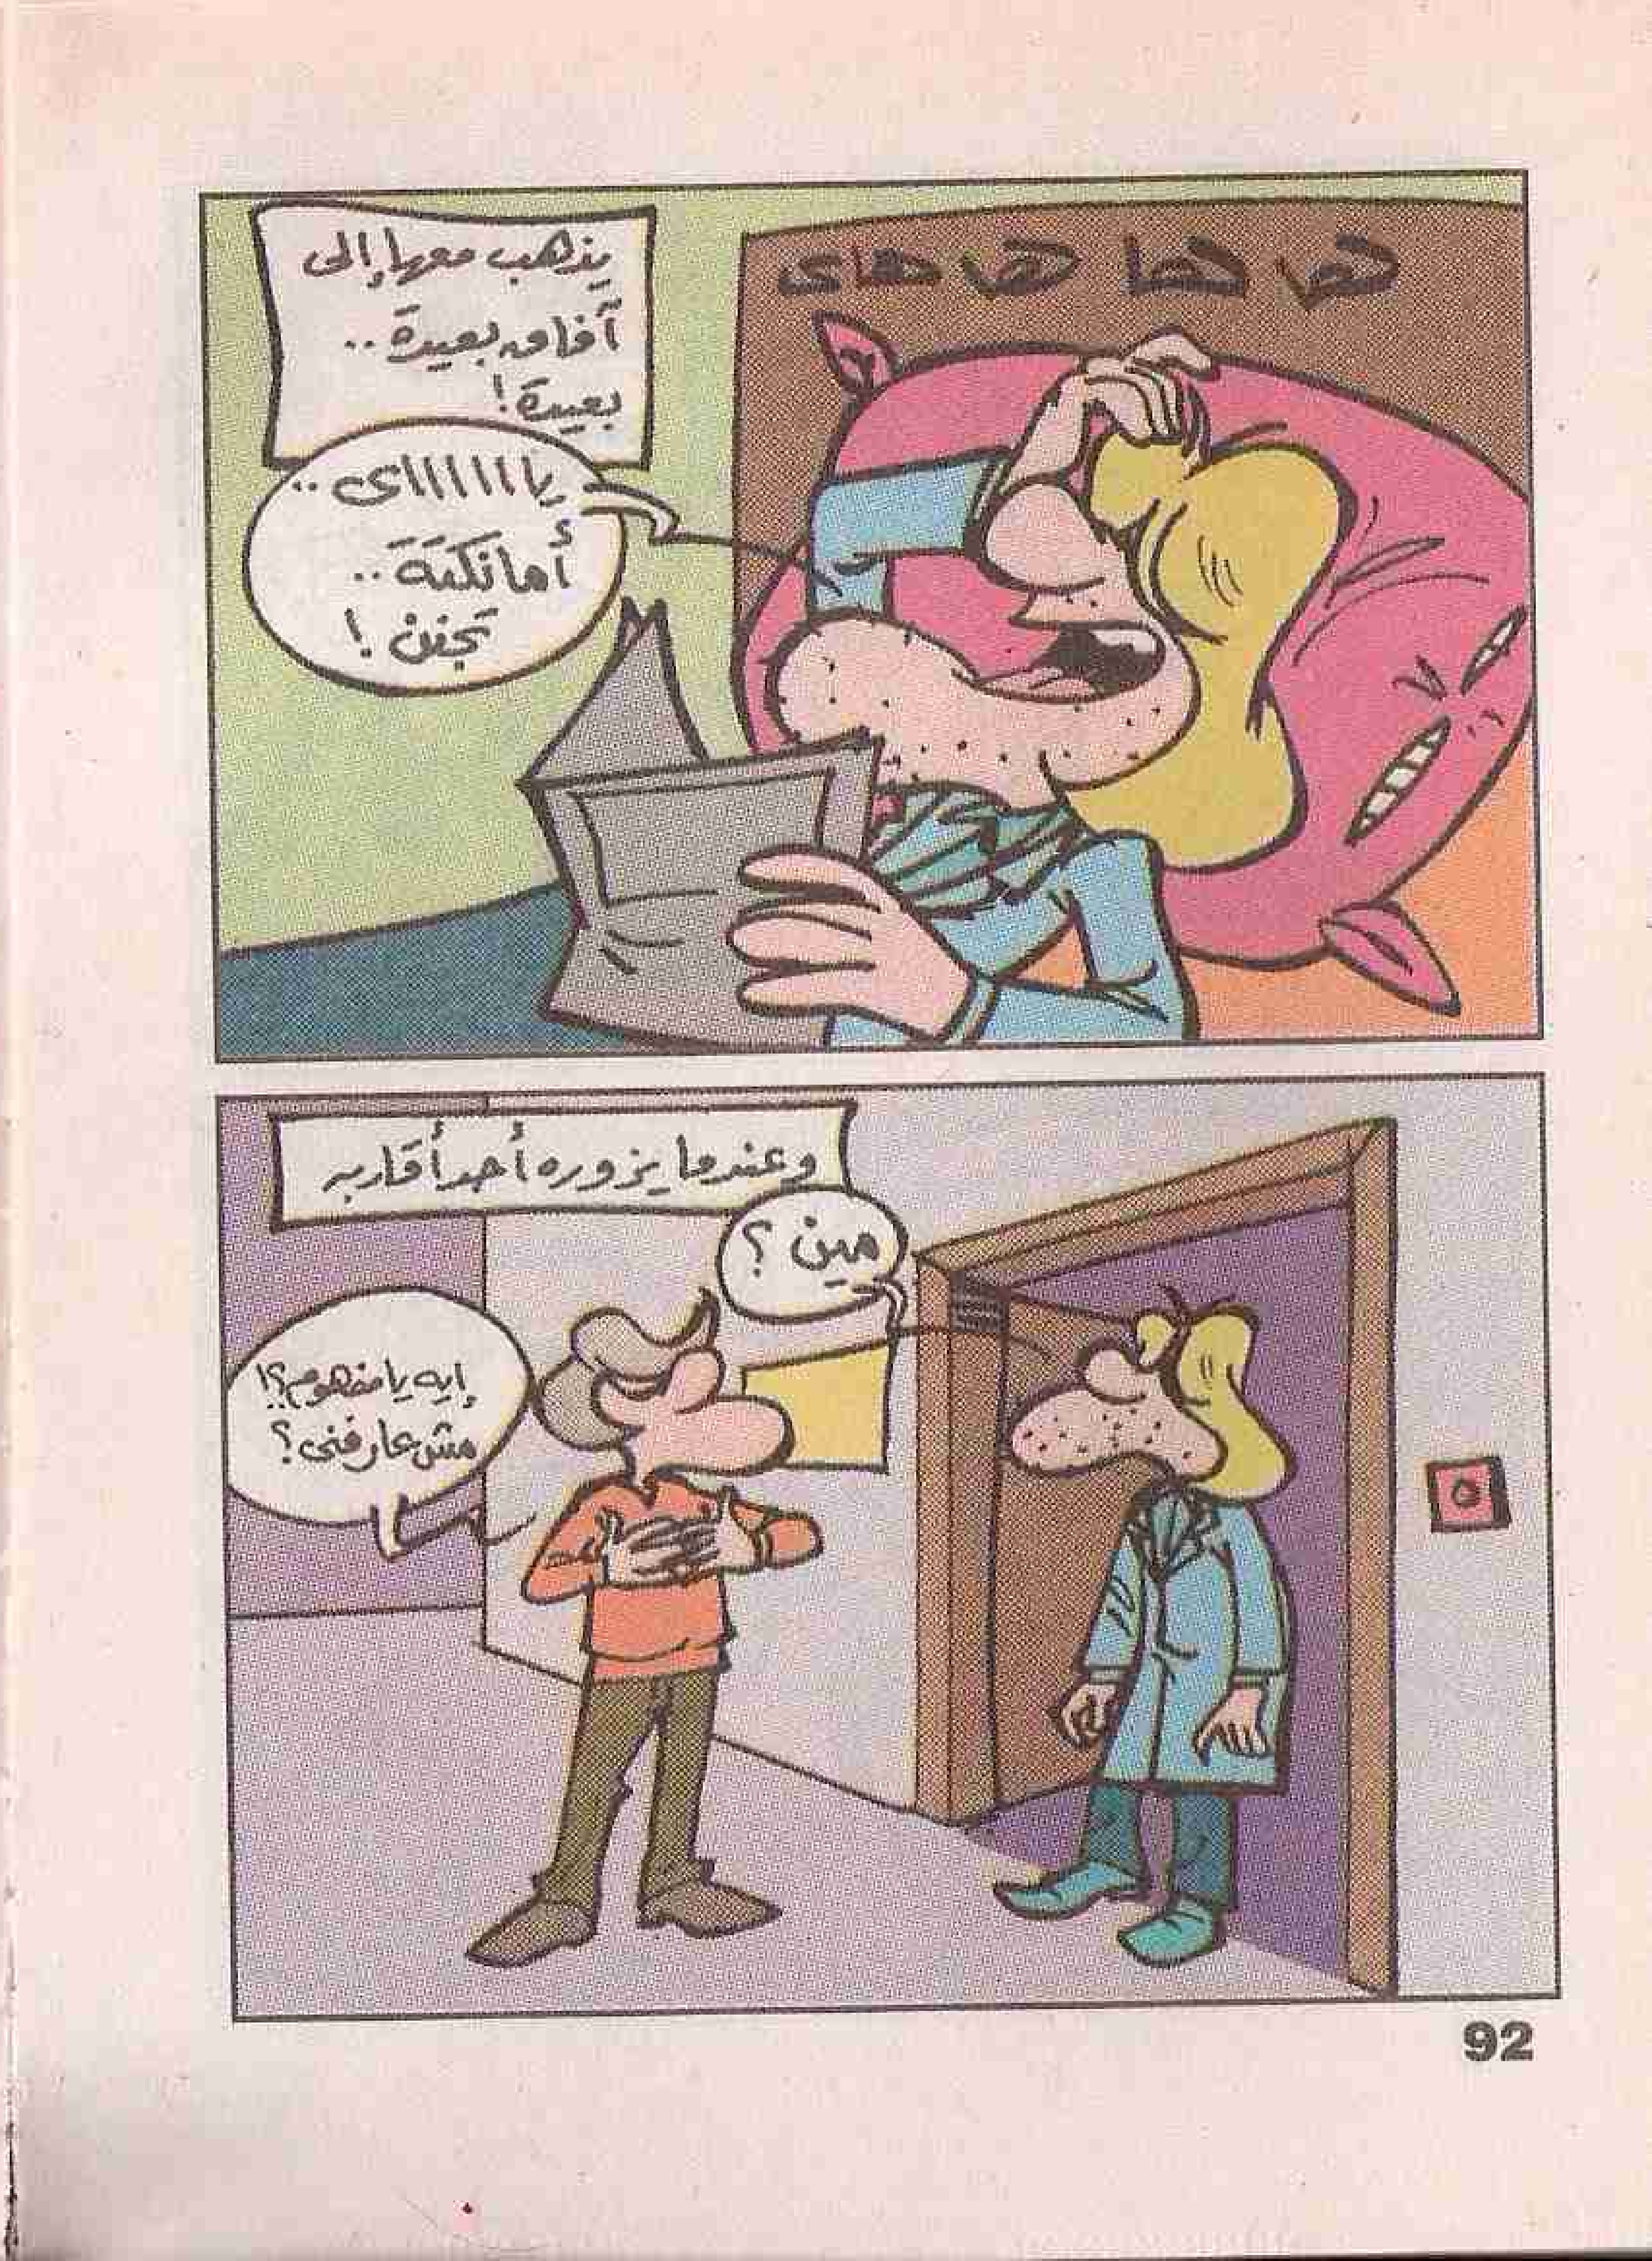 يذهب معها إلى
آفاق بعيدة ..
بعيدة !
هو هما هم هاى
ياااااااى ..
أما نكتة ..
تجنن !
وعندما يزوره أحد أقاربه
مين ؟
إيه يا مفهوم ؟!
مش عارفنى ؟
92